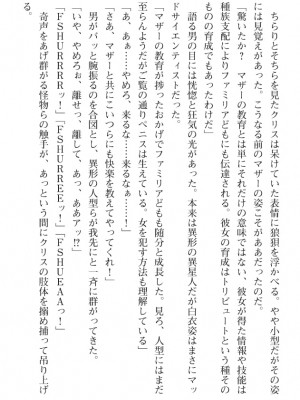 ちらりとそちらを見たクリスは呆けていた表情に狼狽を浮かべる。やや小型だがその姿
には見覚えがあった。こうなる前のマザーの姿こそがああだったのだ。
「驚いたか? マザーの教育とは単にそれだけの意味ではない、彼女が得た情報や技能は
種族支配によりファミリアどもにも伝達される。彼女の育成はトリビュートという種その
ものの育成でもあったわけだ」
語る男の目には恍惚と狂気の光があった。本来は異形の異星人だが白衣姿はまさにマッ
ドサイエンティストだった。
「マザーの教育が捗ったおかげでファミリアどもも随分と成長した。見ろ、人型にはまだ
至らんようだがご覧の通りペニスは生えている。女を犯す方法も理解している」
「あ、あぁ……やめろ、来るな……来るなぁ……!」
「さあ、マザーと共にこいつらにも快楽を教えてやってくれ!」
男がバッと腕振るのを合図とし、異形の人型らが我先にと一斉に群がってきた。
「いや、やめろぉ、離せっ、離して、あっ、ああアッ⁉」
「FSHURRRRッ!」「FSHURREEッ!」「FSHUEAAっ!」
奇声をあげ群がる怪物らの触手が、あっという間にクリスの肢体を搦め捕って吊り上げ
る。